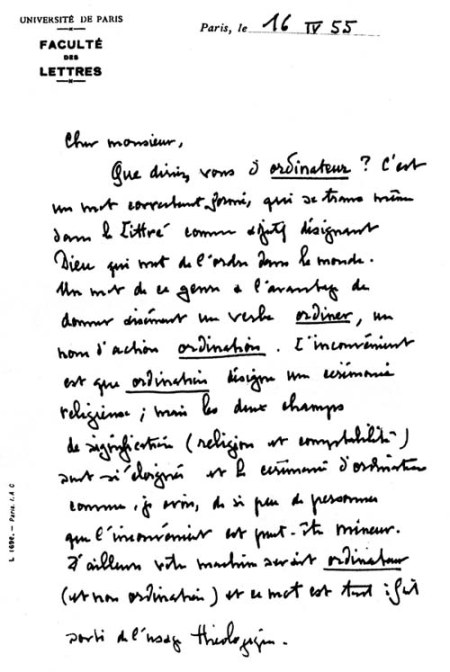 UNIVERSITÉ DE PARIS
FACULTÉ
DES
LETTRES
Paris, le 16 IV 55
Cher monsieur,
Que diriez vous d'ordinateur? C'est
un mot correctement formé, qui se trouve même
dans le Littré comme adjectif désignant
Dieu qui met de l'ordre dans le monde.
Un mot de ce genre a l'avantage de
donner aisément un verbe ordiner, un
nom d'action ordination. L'inconvénient
est que ordination désigne une cérémonie
religieuse; mais les deux champs
de signification (religion et comptabilité)
sont si éloignés et la cérémonie d'ordination
connue, je crois, de si peu de personnes
que l'inconvénient est peut-être mineur.
D'ailleurs votre machine serait ordinateur
(et non ordination) et ce mot est tout à fait
sorti de l'usage théologique.
L 1698. — Paris. I. A. C